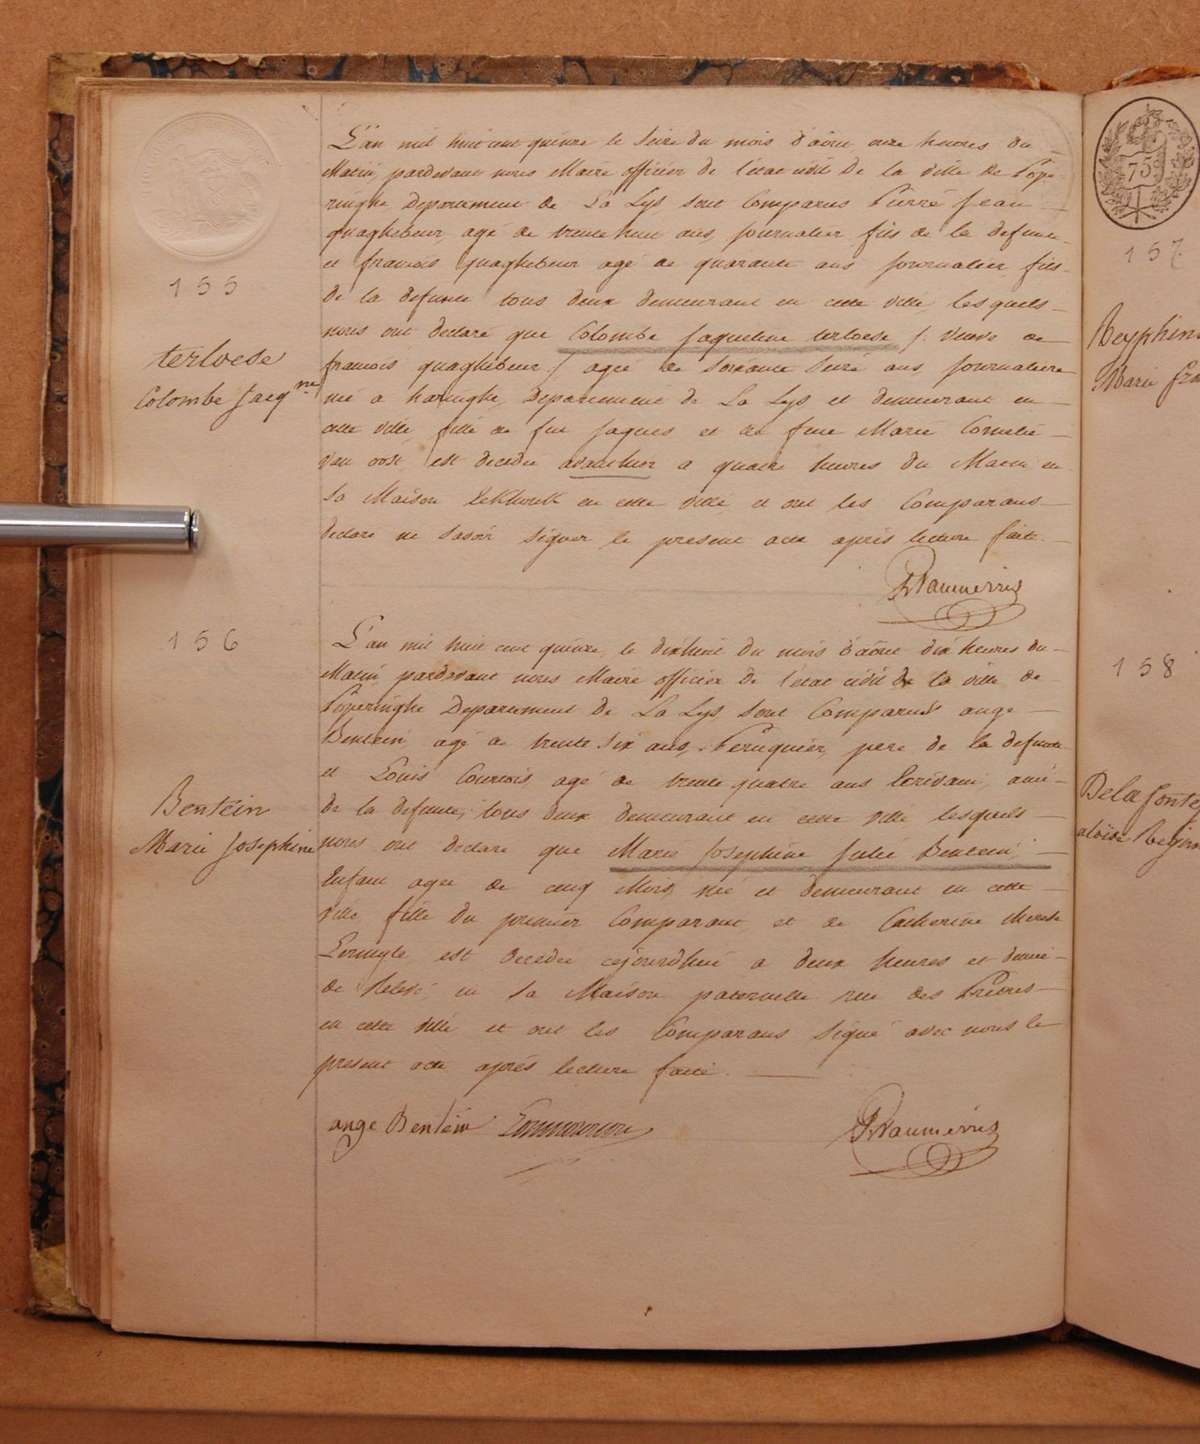 155
terloese
Colombe Jacq.ne
L'an mil huit cent quinze le seize du mois d'août onze heures du
Matin, pardevant nous Maire officier de l'état civil de la ville de Pope-
ringhe Departement de La Lys sont Comparus Pierre Jean
quaghebeur, agé de trente huit ans, journalier fils de la defunte
et francois quaghebeur agé de quarante ans journalier, fils
de la defunte tous deux demeurant en cette ville, lesquels
nous ont declaré que Colombe Jaqueline terloese /: veuve de
francois quaghebeur :/ agée de soixante seize ans journaliere
née a haringhe, Departement de La Lys et demeurant en
cette ville fille de feu Jaques et de feue Marie Cornelie
Van oost, est decedée avanthier a quatre heures du Matin en
sa Maison en cette ville, et ont les Comparans
declaré ne savoir signer le present acte après lecture faite.
156
Bentein
Marie Josephine
L'an mil huit cent quinze, le dixhuit du mois d'août dix heures du
Matin, pardevant nous Maire officier de l'état civil de la ville de
Poperinghe Departement de La Lys sont Comparus ange
Bentein, agé de trente six ans, Peruquier, pere de la defunte
et Louis Courtois, agé de trente quatre ans Ecrivain, ami
de la defunte, tous deux demeurant en cette ville lesquels
nous ont declaré que Marie Josephine Julie Bentein,
Enfant agée de cinq Mois, née et demeurant en cette
ville, fille du premier Comparant et de Catherine
est decedée cejourdhui a deux heures et demie
de en sa Maison paternelle rue des Prêtres
en cette ville et ont les Comparans signé avec nous le
present acte après lecture faite.
ange Bentein
75
157
Marie
158
Delafonte